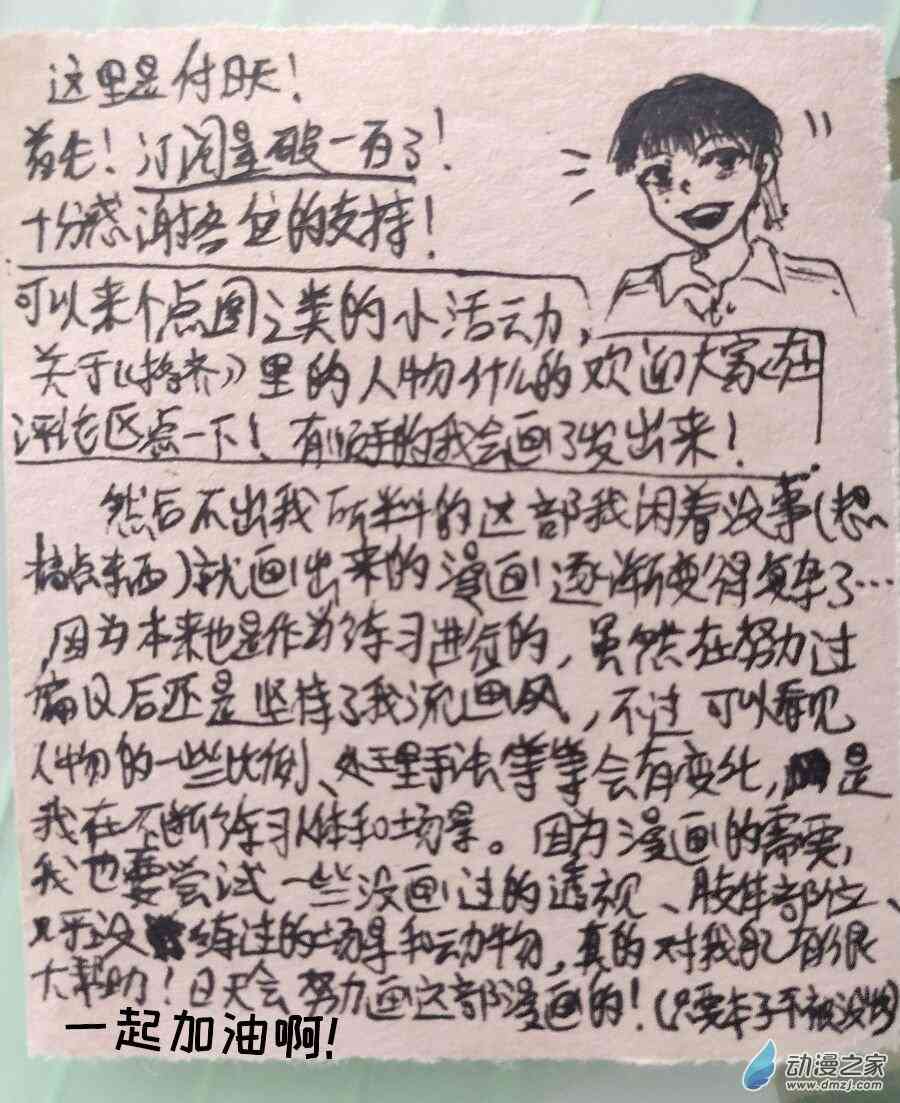 这里是付日天!
首先!订阅量破一百了!
十分感谢各位的支持!
可以来个点图之类的小活动,
关于《》里的人物什么的欢迎大家在
评论区点一下!有顺手的我会画了发出来!
然后不出我所料的这部我闲着没事(想
搞点东西)就画出来的漫画逐渐变得复杂了…
,因为本来也是作为练习进行的,虽然在努力过
后还是坚持了我流画风,不过可以看见
人物的一些比例、处理手法等等会有变化,是
我在不断练习人体和场景。因为漫画的需要,
我也要尝试一些没画过的透视、肢体部位、
几乎没练过的场景和动物,真的对我有很
大帮助!日天会努力画这部漫画的!(只要本子不被没收)
一起加油啊!
动漫之家
www.dmzj.com